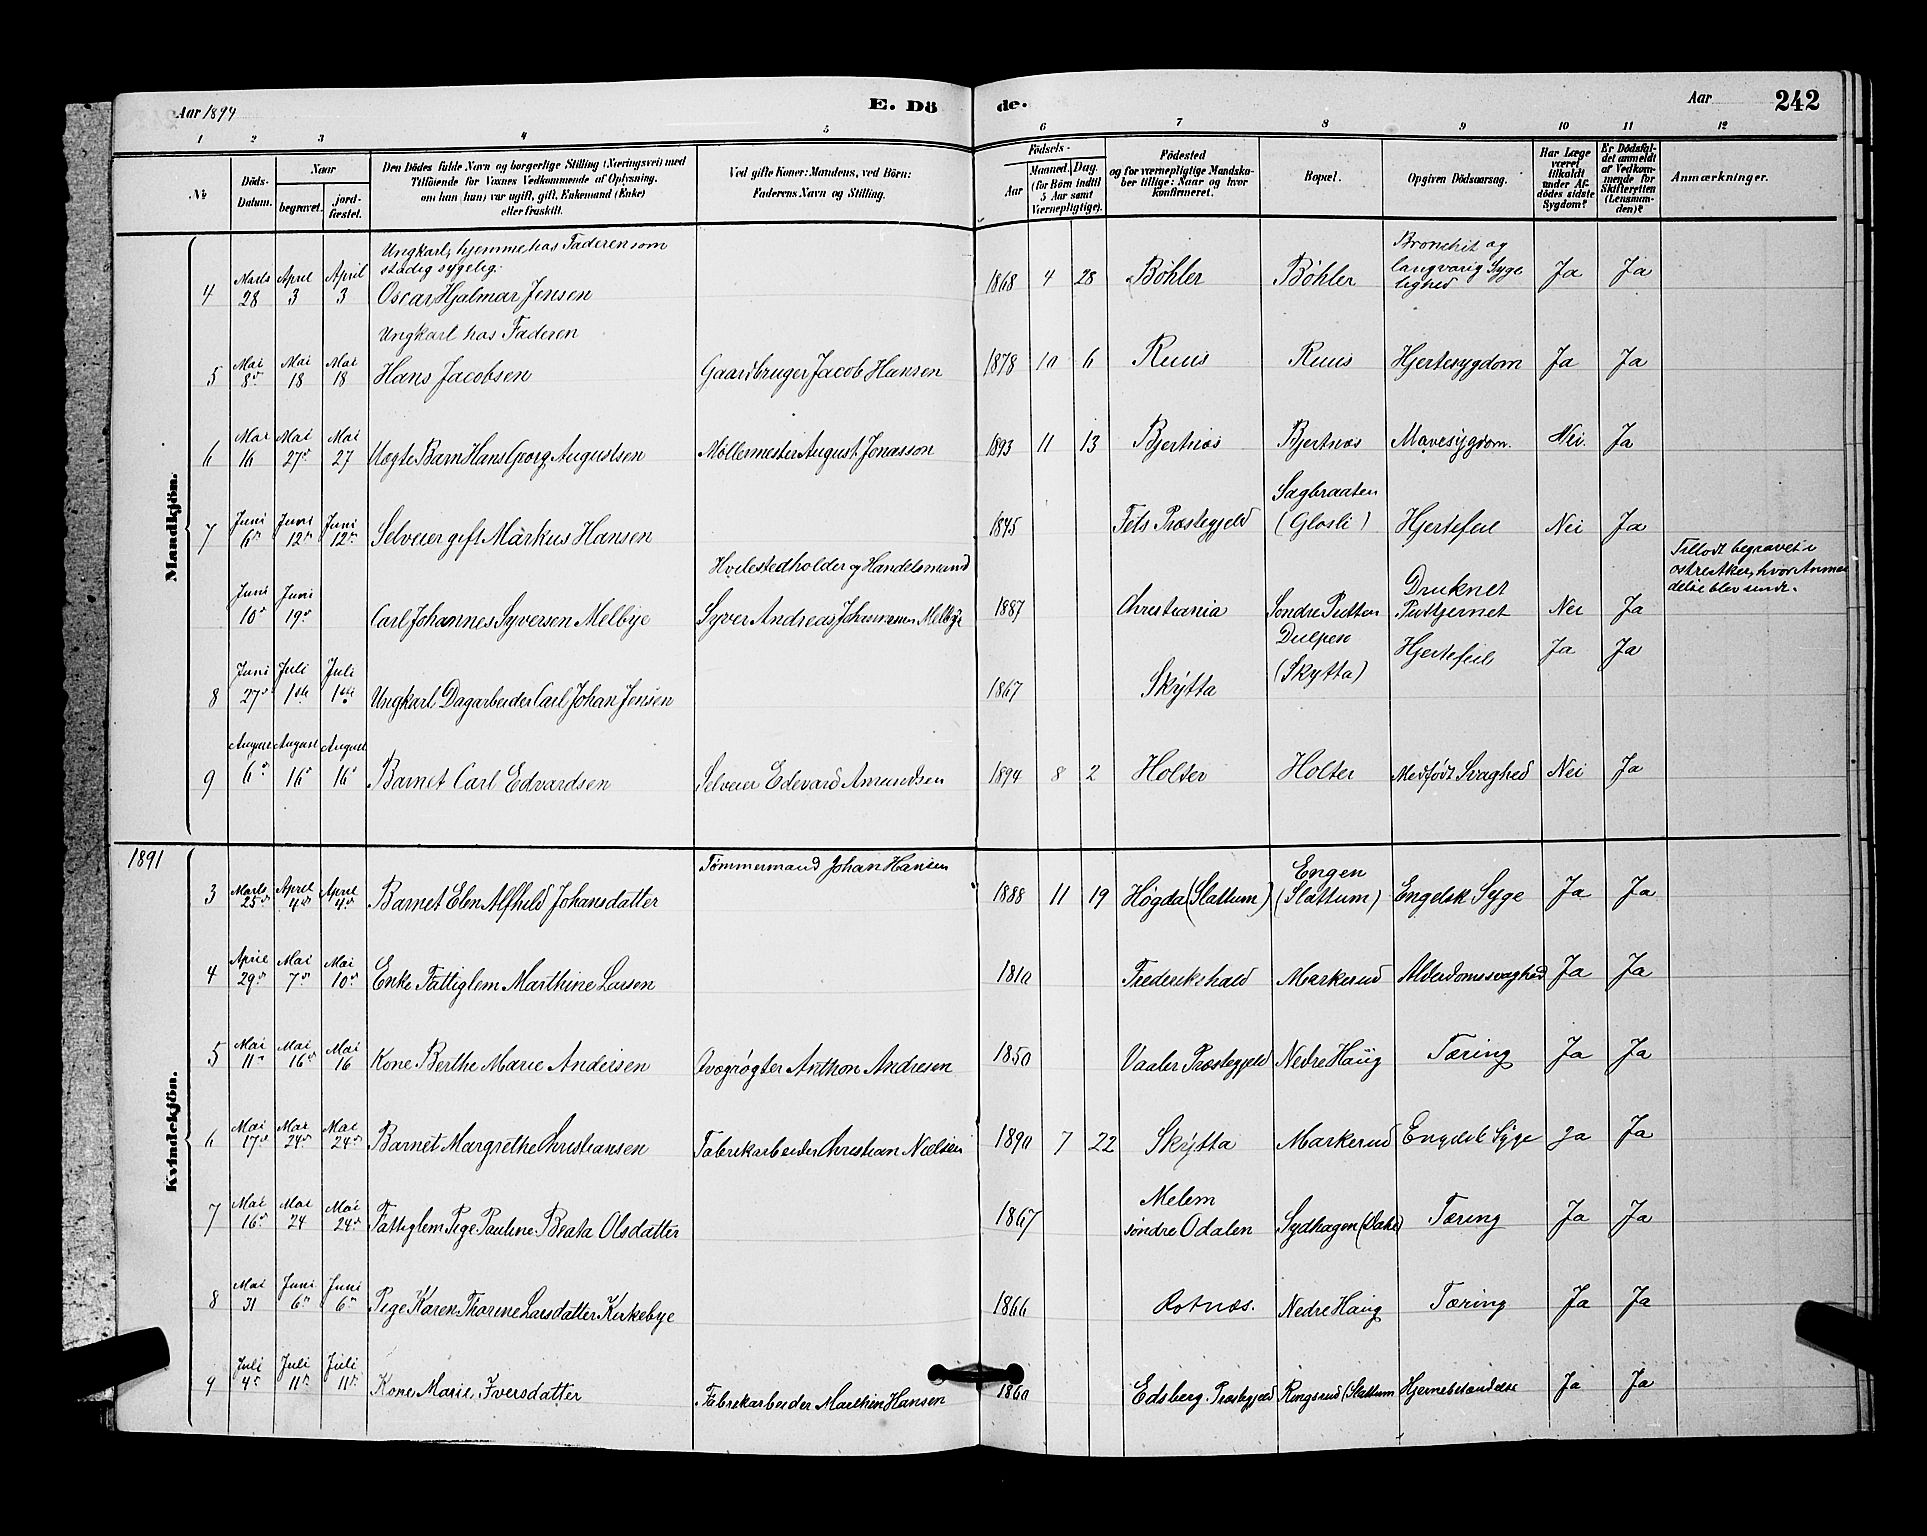 Aar 1894
E. Dö
de.
Aar
242
1 2 3 4 5 6 7 8 9 10 11 12
№
Döds-
Datum.
Naar
begravet.
jord-
fæstet.
Den Dödes fulde Navn og borgerlige Stilling (Næringsvei) med
Tilföiende for Voxnes Vedkommende af Oplysning,
om han (hun) var ugift, gift, Enkemand (Enke)
eller fraskilt.
Ved gifte Koner: Mandens, ved Börn:
Faderens Navn og Stilling.
Födsels-
Aar
Maaned. Dag.
(for Börn indtil
5 Aar samt
Værnepligtige).
Födested
og for værnepligtige Mandska-
ber tillige: Naar og hvor
konfirmeret.
Bopæl.
Opgiven Dödsaarsag.
Har Læge
været
tilkaldt
under Af-
dödes sidste
Sygdom?
Er Dödsfal-
det anmeldt
af Vedkom-
mende for
Skifteretten
(Lensman-
den)?
Anmærkninger.
Mandkjön.
Ungkarl, hjemme hos Faderen som
stadig sygelig.
4 Marts 28 April 3 April 3 Oscar Hjalmar Jensen 1868 4 28 Bøhler Bøhler Bronchit og
langvarig Syge
lighed Ja Ja
Ungkarl hos Faderen
5 Mai 8de Mai 18 Mai 18 Hans Jacobsen Gaardbruger Jacob Hansen 1878 10 6 Ruus Ruus Hjertesygdom Ja Ja
6 Mai 16 Mai 27de Mai 27 Uægte Barn Hans Georg Augustsen Møllermester August Jonasson 1893 11 13 Bjertnæs Bjertnæs Mavesygdom. Nei Ja
7 Juni 6te Juni 12te Juni 12te Selveier gift Markus Hansen 1845 Fets Præstegjeld Sagbraaten
(Glosli) Hjertefeil Nei Ja
Juni 10de Juni 19de Carl Johannes Syversen Melbye Hvilestedholder og Handelsmand
Syver Andreas Johannesen Melbye 1887 Christiania Søndre Putten Druknet
Puttjernet Nei Ja Tillodt begravet i
østre Aker, hvor Anmel
delse blev sendt.
8 Juni 27de Juli 1ste Juli 1ste Ungkarl Dagarbeider Carl Johan Jensen 1867 Skytta
(Skytta) Hjertefeil Ja Ja
9 August 6te August 16de August 16de Barnet Carl Edvardsen Selveier Edevard Amundsen 1894 8 2 Holter Holter Medfødt Svaghed Nei Ja
1891
Kvindekjön.
3 Marts 25de April 4de April 4de Barnet Elen Alfhild Johansdatter Tømmermand Johan Hansen 1888 11 19 Høgda (Slattum) Engen
(Slattum) Engelsk Syge Ja Ja
4 April 29de Mai 7de Mai 10de Enke Fattiglem Marthine Larsen 1810 Frederikshald Markerud Alderdomssvaghed Ja Ja
5 Mai 11te Mai 16de Mai 16 Kone Berthe Marie Andersen Qvægrøgter Anthon Andresen 1850 Vaaler Præstegjeld Nedre Haug Tæring Ja Ja
6 Mai 17de Mai 24de Mai 24de Barnet Margrethe Christiansen Fabrikarbeider Christian Nielsen 1890 7 22 Skytta Markerud Engelsk Syge Ja Ja
7 Mai 16de Mai 24 Mai 24de Fattiglem Pige Pauline Beata Olsdatter 1867 Melem
søndre Odalen Sydhagen (Dahl) Tæring Ja Ja
8 Mai 31 Juni 6te Juni 6te Pige Karen Thorine Larsdatter Kirkebye 1866 Rotnæs. Nedre Haug Tæring Ja Ja
9 Juli 4de Juli 11te Juli 11te Kone Marie Iversdatter Fabrikarbeider Marthin Hansen 1860 Edsberg Præstegjeld Ringsrud (Slattum Hjernebetændelse Ja Ja